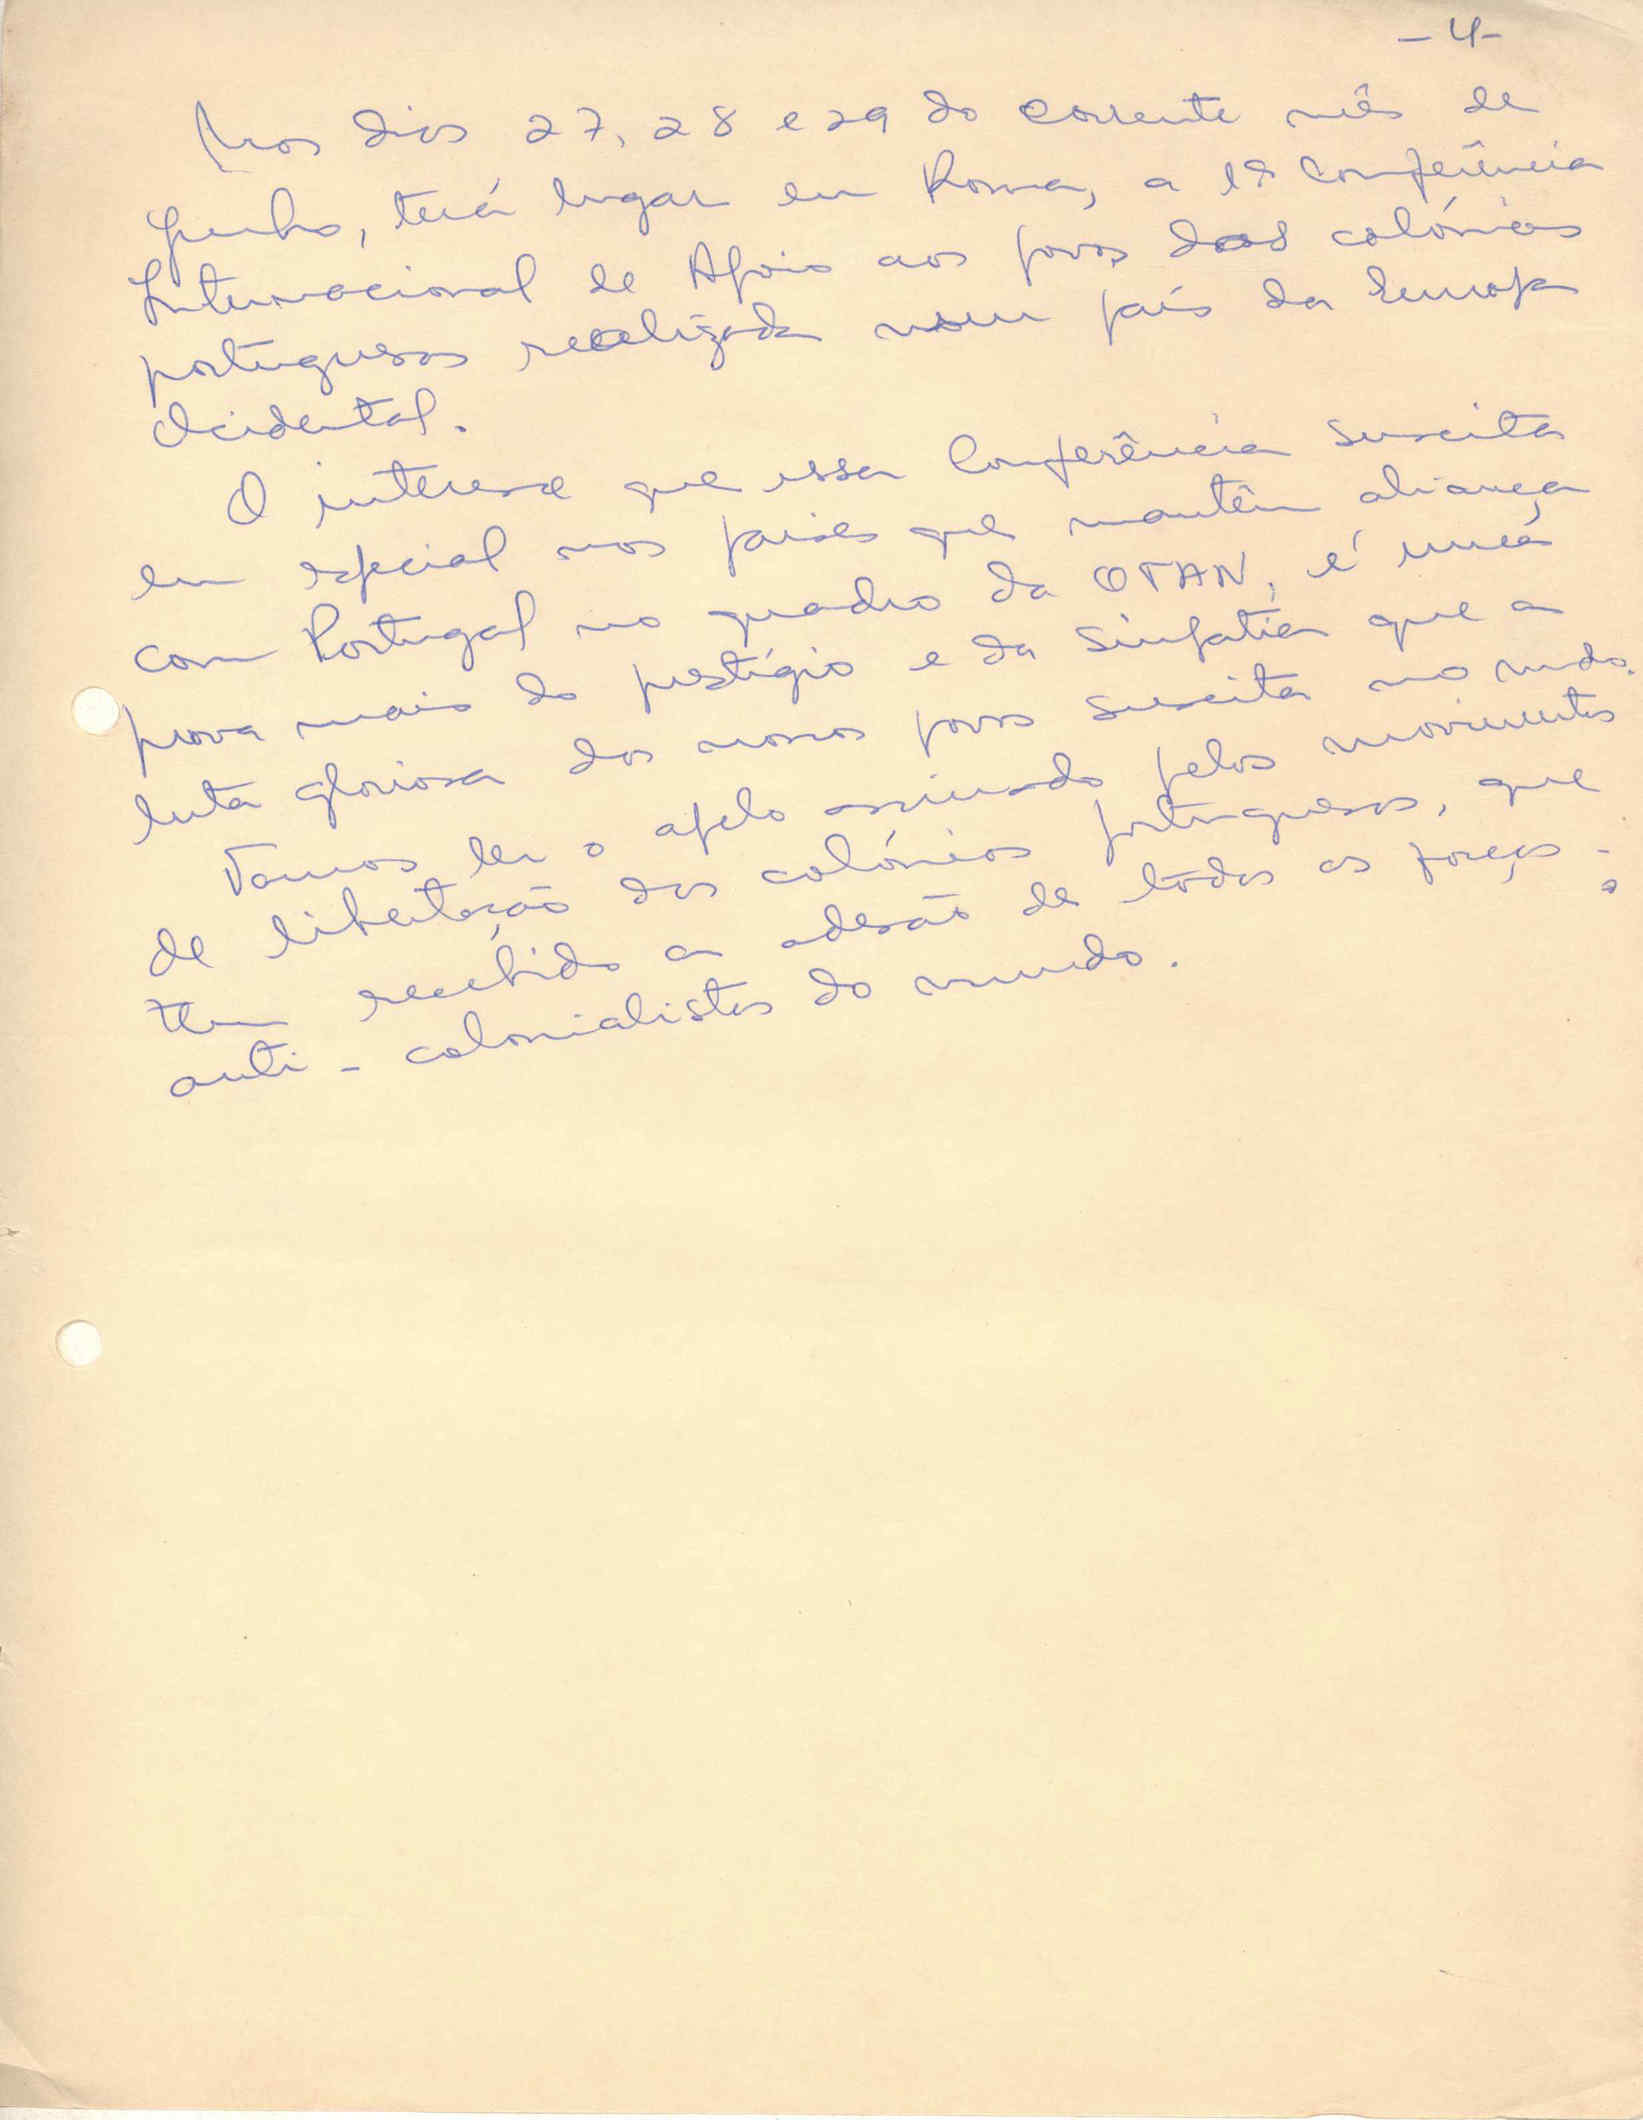 -4-
Nos dias 27, 28 e 29 do corrente mês de
Junho, terá lugar em Roma, a 1ª Conferência
Internacional de Apoio aos povos das colónias
portuguesas realizada num país da Europa
Ocidental.
O interesse que essa Conferência suscita
em especial nos países que mantêm aliança
com Portugal no quadro da OTAN, é uma
prova mais do prestígio e da simpatia que a
luta gloriosa dos nossos povos suscita no mdo.
Vamos ler o apelo assinado pelos movimentos
de libertação das colónias portuguesas, que
tem recebido a adesão de tôdas as forças
anti-colonialistas do mundo.